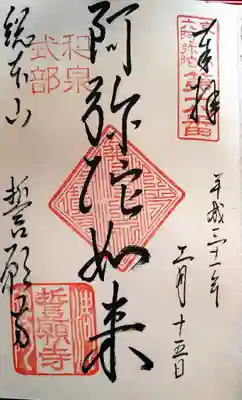 奉拝
六阿弥陀
第六番
平成三十一年
二月十五日
阿弥陀如来
和泉
式部
総本山 誓願寺
誓願寺